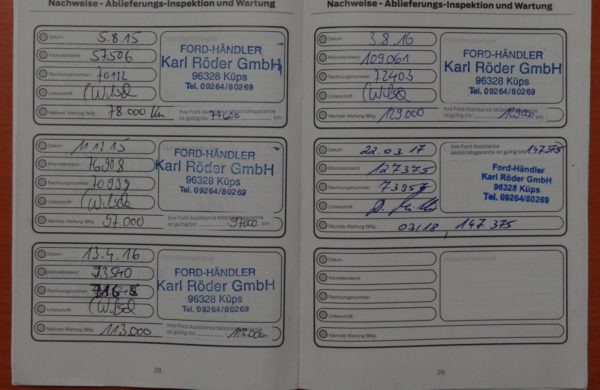 Nachweise - Ablieferungs-Inspektion und Wartung
Datum: 5.8.15
Kilometerstand: 57506
Rechnungsnummer: 70112
Unterschrift:
Nächste Wartung fällig: 78.000 km
FORD-HÄNDLER
Karl Röder GmbH
96328 Küps
Tel. 09264/80269
Ihre Ford Assistance Mobilitätsgarantie
ist gültig bis: km
Datum: 1.12.15
Kilometerstand: 76908
Rechnungsnummer: 70999
Unterschrift:
Nächste Wartung fällig: 97.000
FORD-HÄNDLER
Karl Röder GmbH
96328 Küps
Tel. 09264/80269
Ihre Ford Assistance Mobilitätsgarantie
ist gültig bis: 97000 km
Datum: 13.4.16
Kilometerstand: 93540
Rechnungsnummer:
Unterschrift:
Nächste Wartung fällig: 113.000
FORD-HÄNDLER
Karl Röder GmbH
96328 Küps
Tel. 09264/80269
Ihre Ford Assistance Mobilitätsgarantie
ist gültig bis:
28
Nachweise - Ablieferungs-Inspektion und Wartung
Datum: 3.8.16
Kilometerstand: 109061
Rechnungsnummer: 72403
Unterschrift:
Nächste Wartung fällig: 129.000
FORD-HÄNDLER
Karl Röder GmbH
96328 Küps
Tel. 09264/80269
Ihre Ford Assistance Mobilitätsgarantie
ist gültig bis: 129000 km
Datum: 22.03.17
Kilometerstand: 127375
Rechnungsnummer: 73957
Unterschrift:
Nächste Wartung fällig: 03/18, 147 375
Ihre Ford Assistance
Mobilitätsgarantie ist gültig bis: 147375
Ford-Händler
Karl Röder GmbH
96328 Küps
Tel. 09264/80269
Datum:
Kilometerstand:
Rechnungsnummer:
Unterschrift:
Nächste Wartung fällig:
29